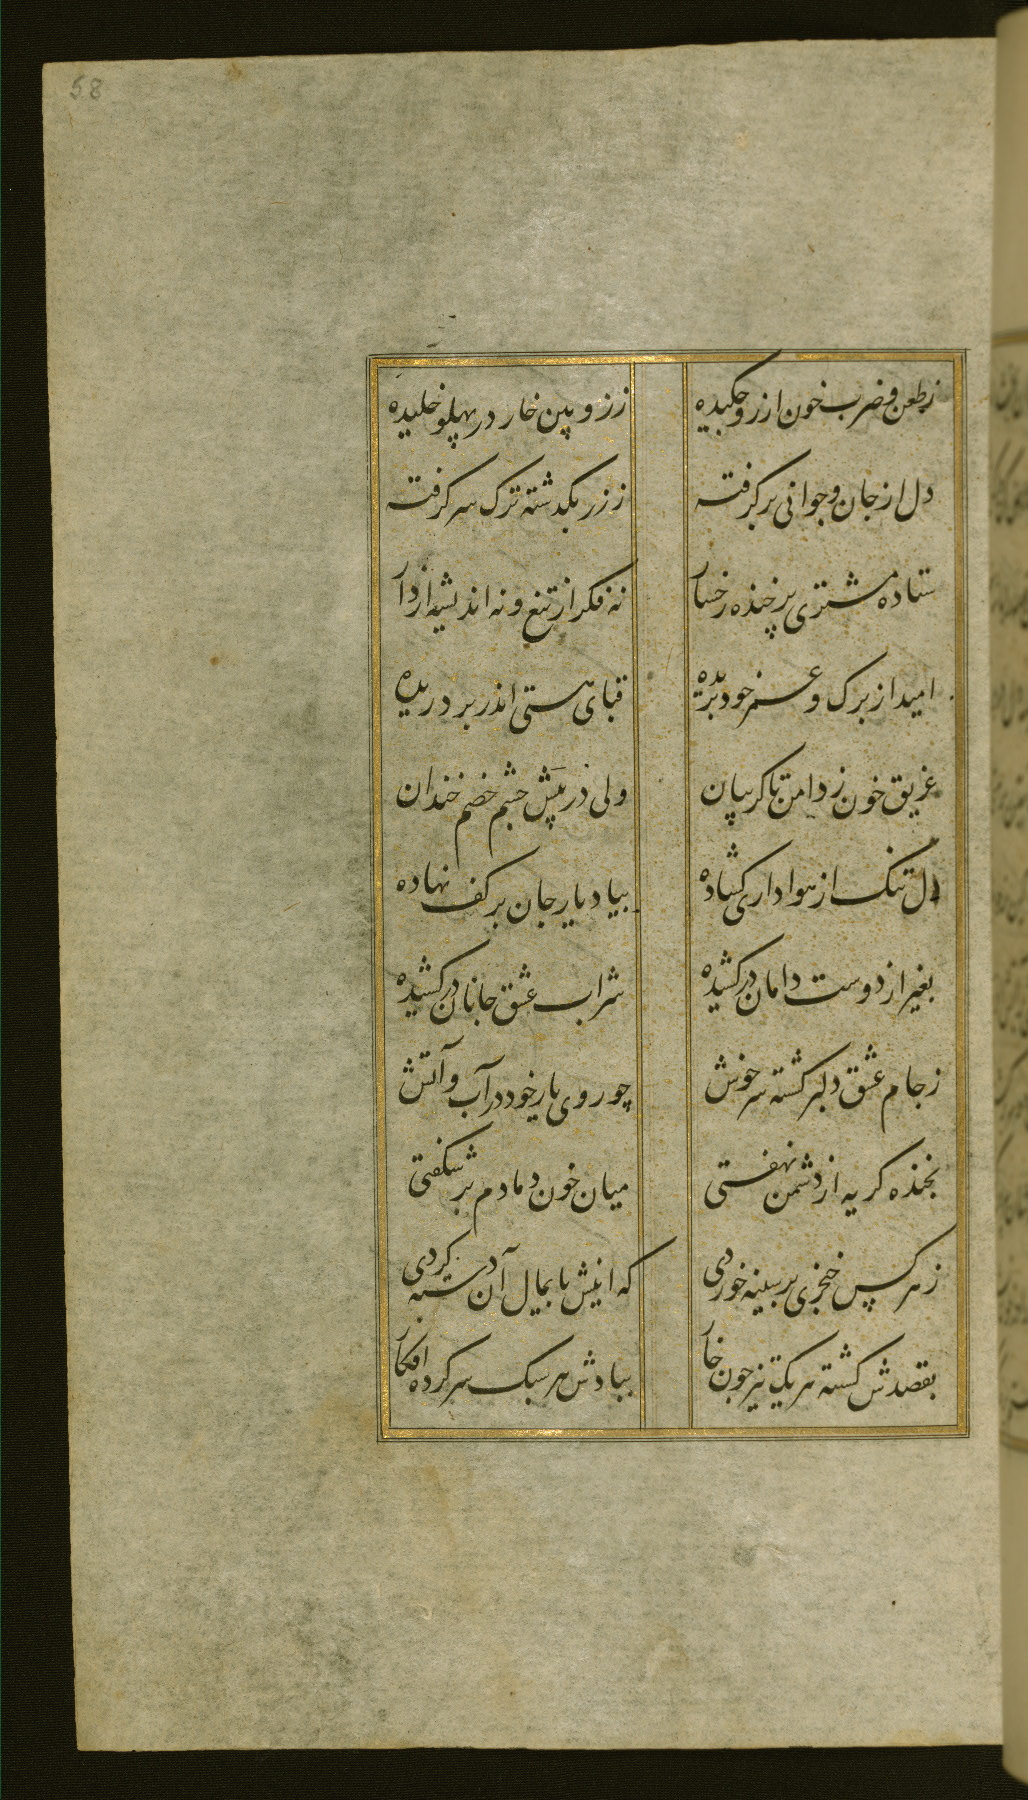 58
زطعن و ضرب خون از زو چکیده
ززوپین خار در پهلو خلیده
دل از جان و جوانی بر کرفته
ززر بکدشته ترک سر کرفته
ستاده مشتری پر خنده رخسار
نه فکر از تیغ و نه اندیشه از دار
امید از برک و عمر خود بریده
قبای هستی اندر بر دریده
غریق خون ز دامن تا کریبان
ولی در پیش چشم خصم خندان
دل تنک از هواداری کشاده
بیاد یار جان بر کف نهاده
بغیر از دوست دامان در کشیده
شراب عشق جانان در کشیده
زجام عشق دلبر کشته سر خوش
چو روی یار خود در آب و آتش
بخنده کریه از دشمن نهفتی
میان خون دمادم بر شکفتی
ز هر کس خنجری بر سینه خوردی
که اینش پایمال آن دسته کردی
بقصدش کشته هر یک تیز چون خار
بیادش هر سبک سر کرده افکار